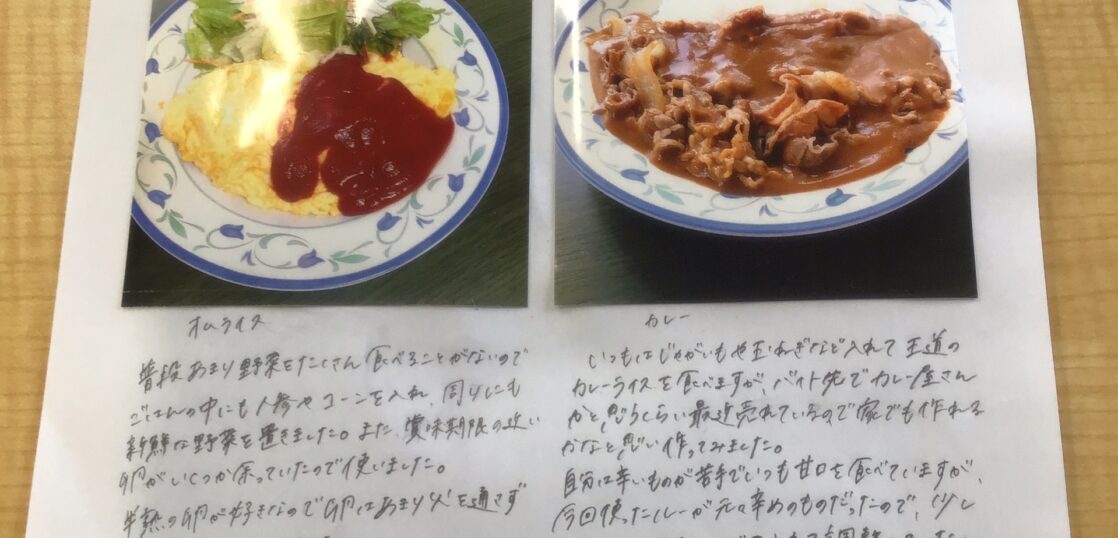 オムライス
普段あまり野菜をたくさん食べることがないので
ごはんの中にも人参やコーンを入れ、周りにも
新鮮な野菜を置きました。また、賞味期限の近い
卵がいくつか余っていたので使いました。
半熟の卵が好きなので卵はあまり火を通さず
カレー
いつもはじゃがいもや玉ねぎなど入れて王道の
カレーライスを食べますが、バイト先でカレー屋さん
かと思うくらい最近売れているので家でも作れる
かなと思い作ってみました。
自分は辛いものが苦手でいつも甘口を食べていますが、
今回使ったルーが元々辛めのものだったので、少し